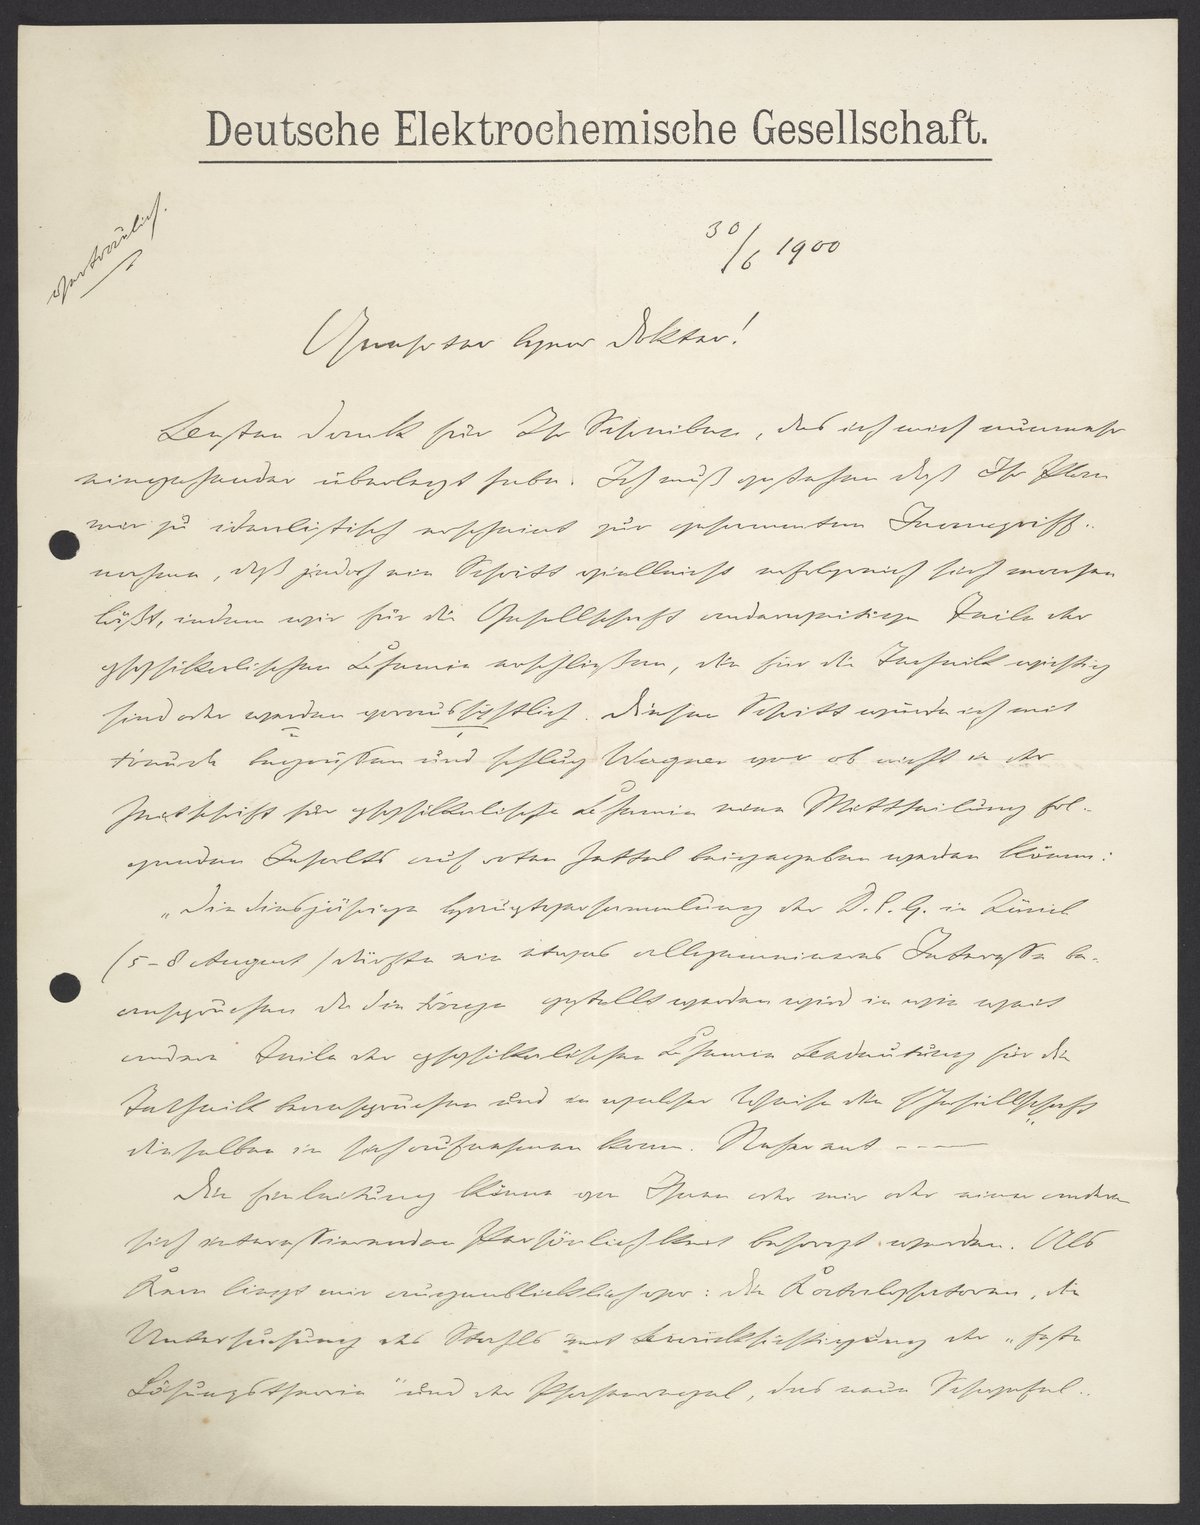 Deutsche Elektrochemische Gesellschaft.
vertraulich.
30/6 1900
Geehrter Herr Doktor!
Besten Dank für Ihr Schreiben, das ich mich nunmehr
eingehender überlegt habe. Ich muß gestehen daß Ihr Plan
mir zu idealistisch erscheint zur gesammten Inangriff-
nahme, daß jedoch ein Schritt vielleicht erfolgreich sich machen
läßt, indem wir für die Gesellschaft anderweitige Teile der
physikalischen Chemie erschließen, die für die Technik wichtig
sind oder werden voraussichtlich. Diesen Schritt würde ich mit
Freude begrüssen und schlug Wagner vor ob nicht in der
Zeitschrift für physikalische Chemie eine Mittheilung fol-
genden Inhalts auf roten Zettel beigegeben werden könne:
„Die diesjährige Hauptversammlung der D. E. G. in Zürich
(5-8 August) dürfte ein etwas allgemeineres Interesse be-
anspruchen da die Frage gestellt werden wird in wie weit
andere Teile der physikalischen Chemie Bedeutung für die
Technik beanspruchen und in welcher Weise die Gesellschaft
dieselben in sich aufnehmen kann. Referent ----
Die Einleitung könne von Ihnen oder mir oder einer andern
sich interessierenden Persönlichkeit besorgt werden. Als
Kern liegt mir augenblicklich vor: die Katalysatoren, die
Untersuchung des Stahls mit Berücksichtigung der „feste
Lösungstheorie" und der Phasenregel, das neue Schwefel-